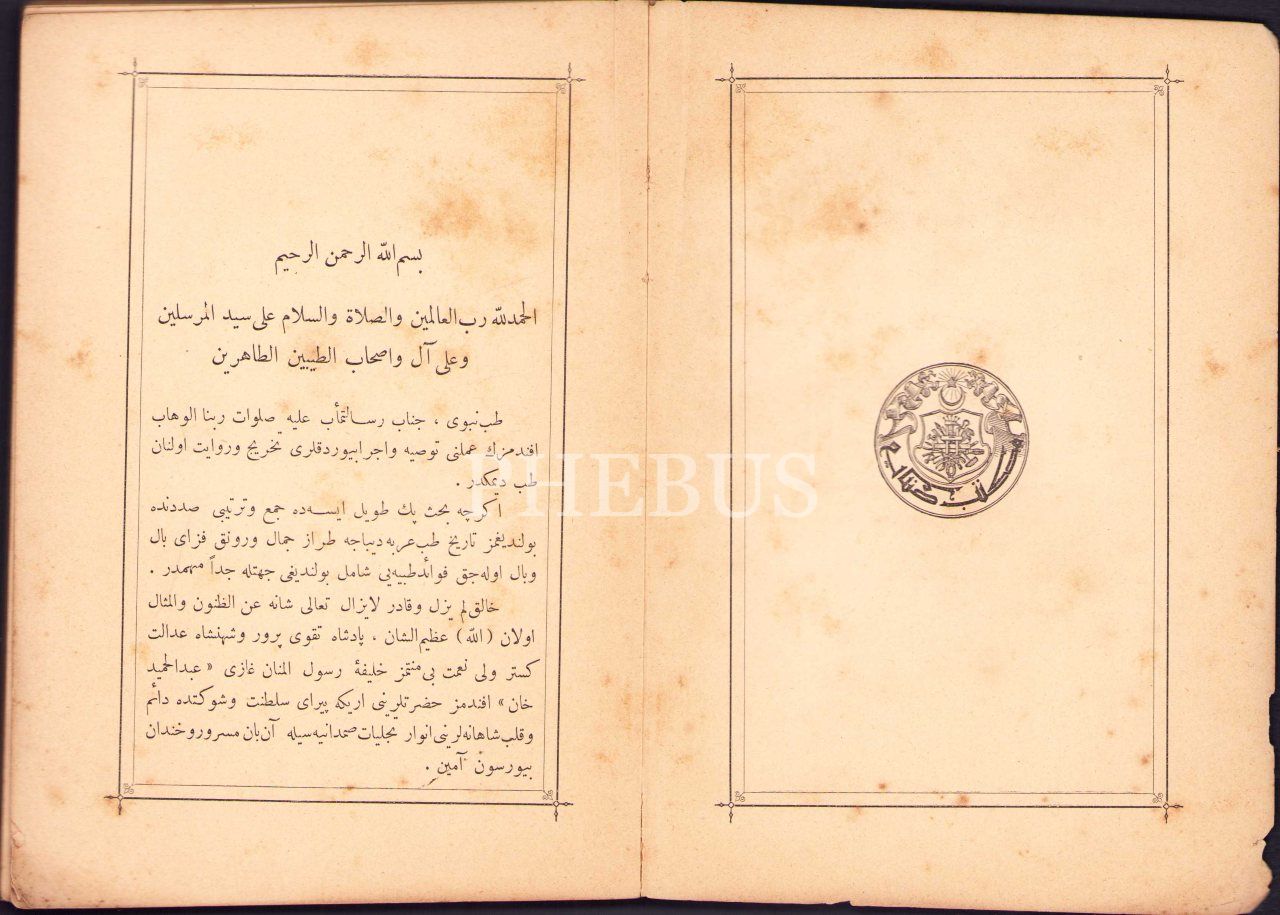 بسم الله الرحمن الرحيم
الحمدلله رب العالمين والصلاة والسلام على سيد المرسلين
وعلى آل واصحاب الطيبين الطاهرين
طب نبوى ، جناب رسالتمأب عليه صلوات ربنا الوهاب
افندمزك عملنى توصيه واجرا بيوردقلرى تخريج وروايت اولنان
طب ديمكدر .
اكرچه بحث پك طويل ايسه‌ده جمع وترتيبى صددنده
بولنديغمز تاريخ طب عربه ديباجه طراز جمال ورونق فزاى بال
وبال اوله‌جق فوائد طبيه‌يى شامل بولنديغى جهتله جداً مهمدر .
خالق لم يزل وقادر لايزال تعالى شانه عن الظنون والمثال
اولان (الله) عظيم‌الشان ، پادشاه تقوى پرور وشهنشاه عدالت
كستر ولى نعمت بى منتمز خليفۀ رسول المنان غازى « عبدالحميد
خان» افندمز حضرتلرينى اريكه پيراى سلطنت وشوكتده دائم
وقلب شاهانه‌لرينى انوار تجليات صمدانيه‌سيله آن بان مسرور وخندان
بيورسون آمين .
PHEBUS